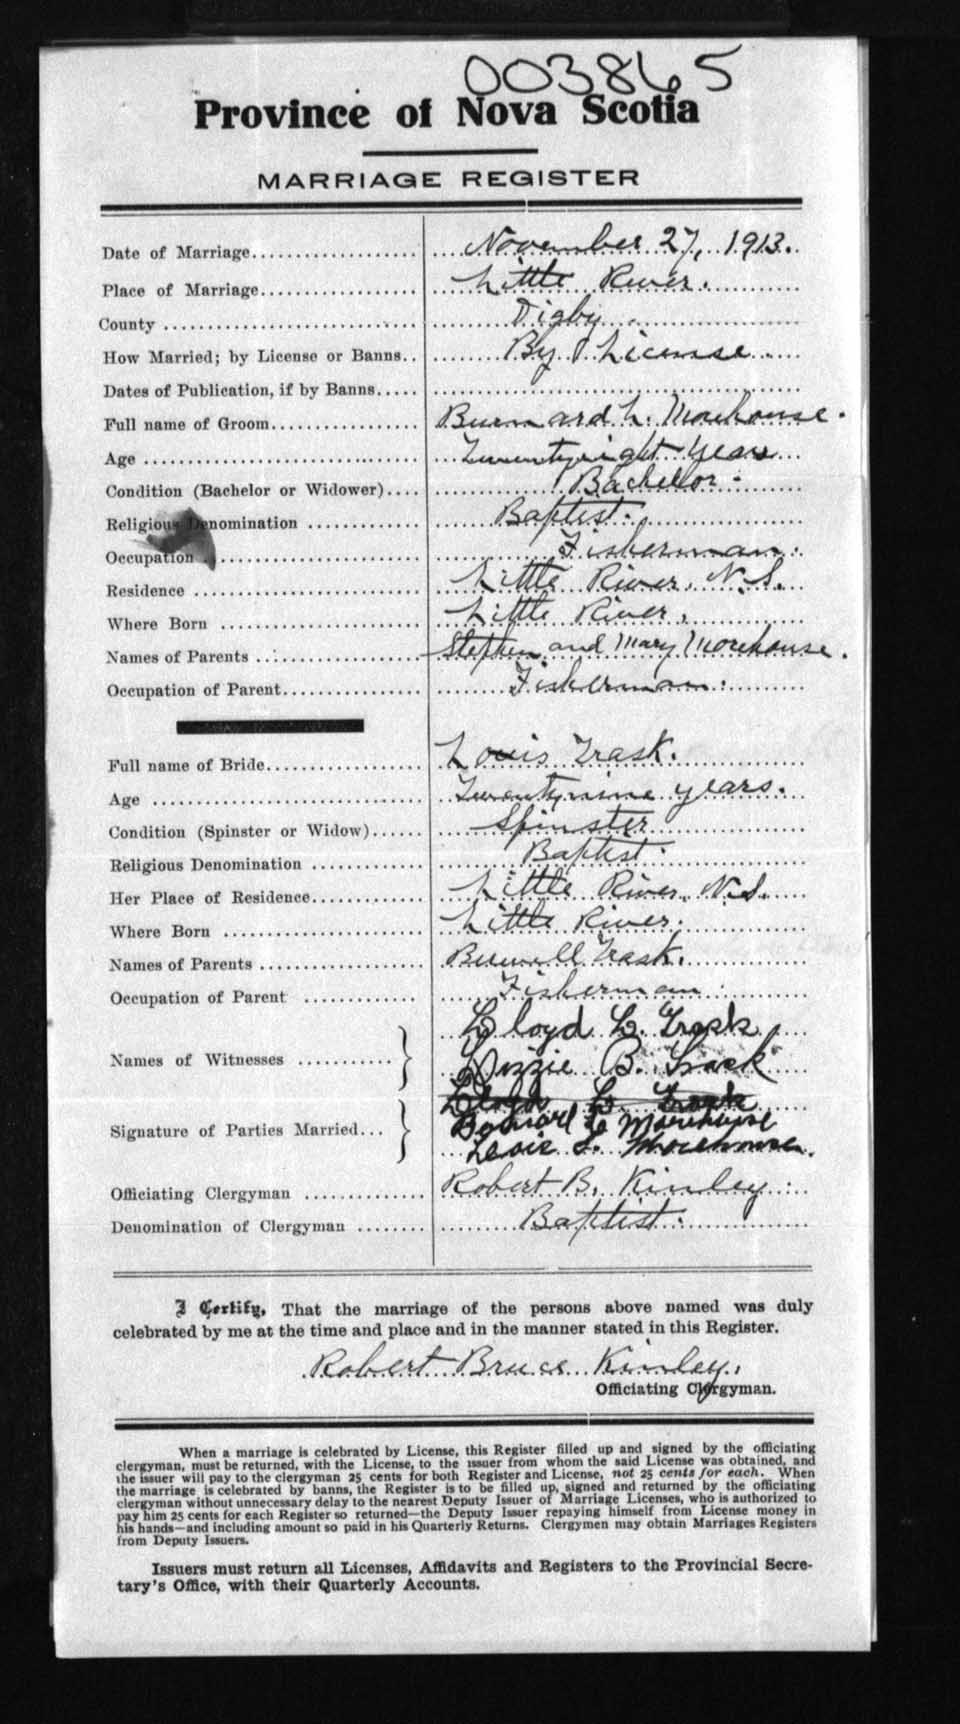 003865
Province of Nova Scotia
MARRIAGE REGISTER
Date of Marriage................... November 27, 1913.
Place of Marriage.................. Little River.
County ............................. Digby
How Married; by License or Banns.. By License
Dates of Publication, if by Banns.....
Full name of Groom................. Burnard L. Morehouse.
Age ............................... Twentyeight Years
Condition (Bachelor or Widower).... Bachellor
Religious Denomination ............ Baptist.
Occupation ........................ Fisherman.
Residence ......................... Little River, N.S.
Where Born ....................... Little River.
Names of Parents .................. Stephen and Mary Morehouse.
Occupation of Parent............... Fisherman.
Full name of Bride.................. Louis Trask.
Age ............................... Twentynine years.
Condition (Spinster or Widow)...... Spinster
Religious Denomination ............. Baptist.
Her Place of Residence............. Little River, N.S.
Where Born ....................... Little River.
Names of Parents ................... Burwell Trask.
Occupation of Parent ............. Fisherman
Lloyd L. Trask
Names of Witnesses ........... } Lizzie B. Trask
Lloyd L. Trask
Signature of Parties Married... } Bernard L Morehouse
Lovis L. Morehouse.
Officiating Clergyman ............. Robert B. Kinley
Denomination of Clergyman ........ Baptist.
I Certify, That the marriage of the persons above named was duly
celebrated by me at the time and place and in the manner stated in this Register.
Robert Bruce Kinley.
Officiating Clergyman.
When a marriage is celebrated by License, this Register filled up and signed by the officiating
clergyman, must be returned, with the License, to the issuer from whom the said License was obtained, and
the issuer will pay to the clergyman 25 cents for both Register and License, not 25 cents for each. When
the marriage is celebrated by banns, the Register is to be filled up, signed and returned by the officiating
clergyman without unnecessary delay to the nearest Deputy Issuer of Marriage Licenses, who is authorized to
pay him 25 cents for each Register so returned—the Deputy Issuer repaying himself from License money in
his hands—and including amount so paid in his Quarterly Returns. Clergymen may obtain Marriages Registers
from Deputy Issuers.
Issuers must return all Licenses, Affidavits and Registers to the Provincial Secre-
tary's Office, with their Quarterly Accounts.